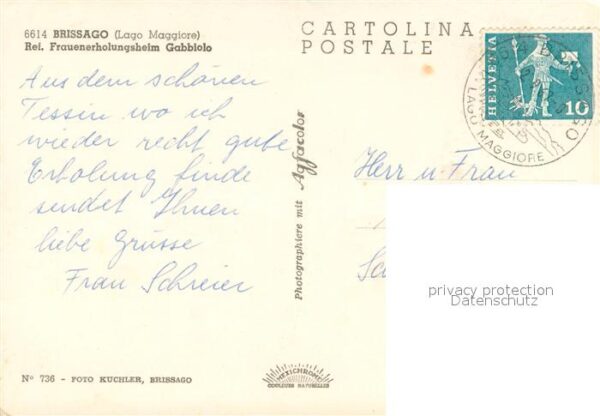 6614 BRISSAGO (Lago Maggiore)
Ref. Frauenerholungsheim Gabbiolo
CARTOLINA
POSTALE
HELVETIA
10
LAGO MAGGIORE
Aus dem schönen
Tessin wo ich
wieder recht gute
Erholung finde
sendet Ihnen
liebe Grüsse
Frau Schreier
Photographiere mit Agfacolor
Herr u Frau
privacy protection
Datenschutz
MEXICHROME
COULEURS NATURELLES
Nº 736 - FOTO KUCHLER, BRISSAGO